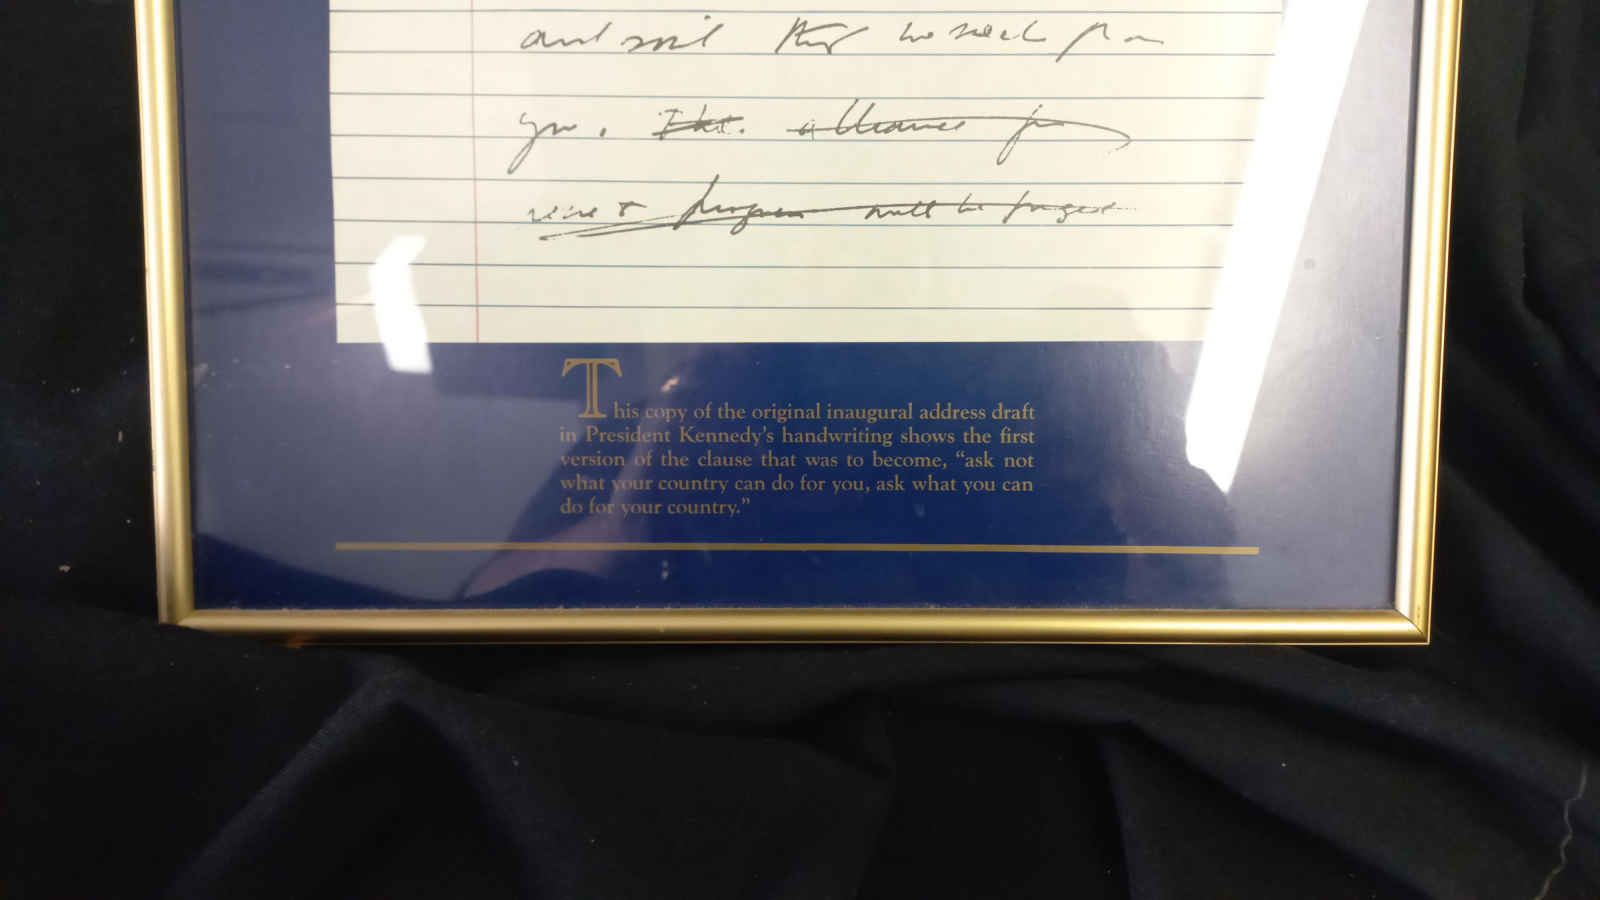 and
you. The alliance for
will be
This copy of the original inaugural address draft
in President Kennedy's handwriting shows the first
version of the clause that was to become, “ask not
what your country can do for you, ask what you can
do for your country.”